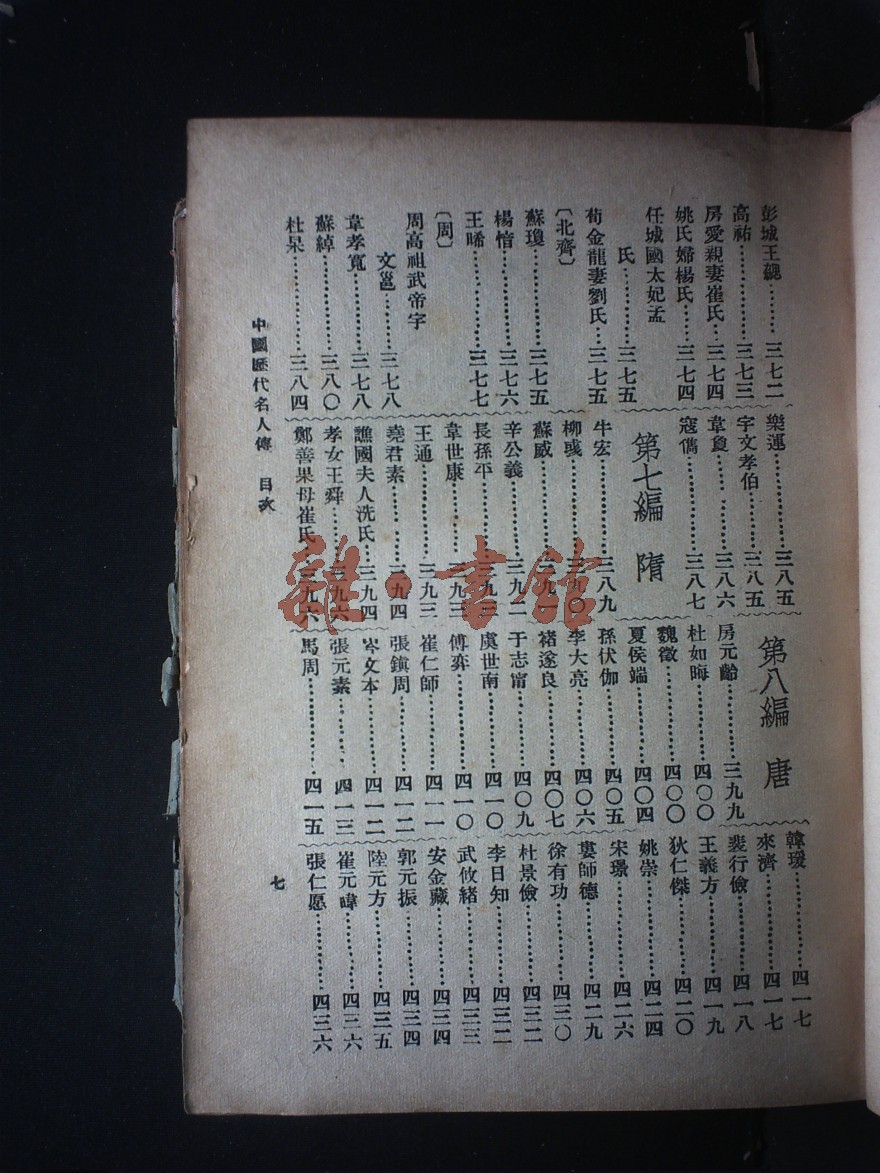 彭城王勰………三七二
高祐………三七三
房愛親妻崔氏……三七四
姚氏婦楊氏……三七四
任城國太妃孟
氏………三七五
荀金龍妻劉氏……三七五
〔北齊〕
蘇瓊………三七五
楊愔………三七六
王晞………三七七
〔周〕
周高祖武帝宇
文邕………三七八
韋孝寬………三七八
蘇綽………三八〇
杜杲………三八四
樂運………三八五
宇文孝伯………三八五
韋敻………三八六
寇儁………三八七
第七編 隋
牛宏………三八九
柳彧………三九〇
蘇威………三九一
辛公義………三九二
長孫平………三九二
韋世康………三九三
王通………三九三
堯君素………三九四
譙國夫人洗氏……三九四
孝女王舜………三九六
鄭善果母崔氏……三九六
第八編 唐
房元齡………三九九
杜如晦………四〇〇
魏徵………四〇〇
夏侯端………四〇四
孫伏伽………四〇五
李大亮………四〇六
褚遂良………四〇七
于志甯………四〇九
虞世南………四一〇
傅弈………四一〇
崔仁師………四一一
張鎮周………四一二
岑文本………四一二
張元素………四一三
馬周………四一五
韓瑗………四一七
來濟………四一七
裴行儉………四一八
王義方………四一九
狄仁傑………四二〇
姚崇………四二四
宋璟………四二六
婁師德………四二九
徐有功………四三〇
杜景儉………四三二
李日知………四三二
武攸緒………四三三
安金藏………四三四
郭元振………四三四
陸元方………四三五
崔元暐………四三六
張仁愿………四三六
中國歷代名人傳 目次
七
雜·書館